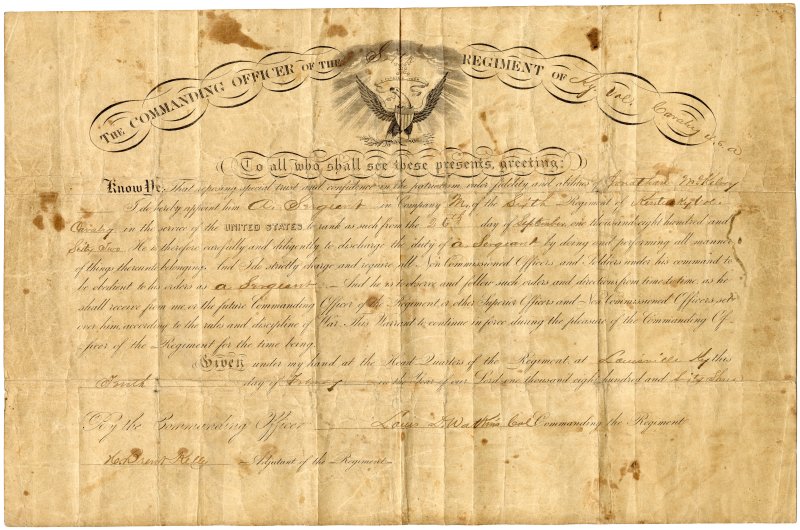 THE COMMANDING OFFICER OF THE Sixth REGIMENT OF Ky. Vol. Cavalry U.S.A
To all who shall see these presents, greeting:
Know Ye, That reposing special trust and confidence in the patriotism, valor fidelity and abilities of Jonathan McKelvy
I do hereby appoint him A. Sergeant in Company M, of the Sixth Regiment of Kentucky Vol.
Cavalry in the service of the UNITED STATES to rank as such from the 25th day of September one thousand eight hundred and
Sixty Two. He is therefore carefully and diligently to discharge the duty of a Sergeant by doing and performing all manner
of things thereunto belonging. And I do strictly charge and require all Non Commissioned Officers and Soldiers under his command to
be obedient to his orders as a Sergeant. And he is to observe and follow such orders and directions from time to time, as he
shall receive from me or the future Commanding Officer of the Regiment or other Superior Officers and Non Commissioned Officers set
over him, according to the rules and discipline of War. This Warrant to continue in force during the pleasure of the Commanding Of-
ficer of the Regiment for the time being.
Given under my hand at the Head Quarters of the Regiment, at Louisville Ky this
day of in the Year of our Lord one thousand eight hundred and Sixty
By the Commanding Officer Louis D. Watkins Col Commanding the Regiment
Kelly Adjutant of the Regiment